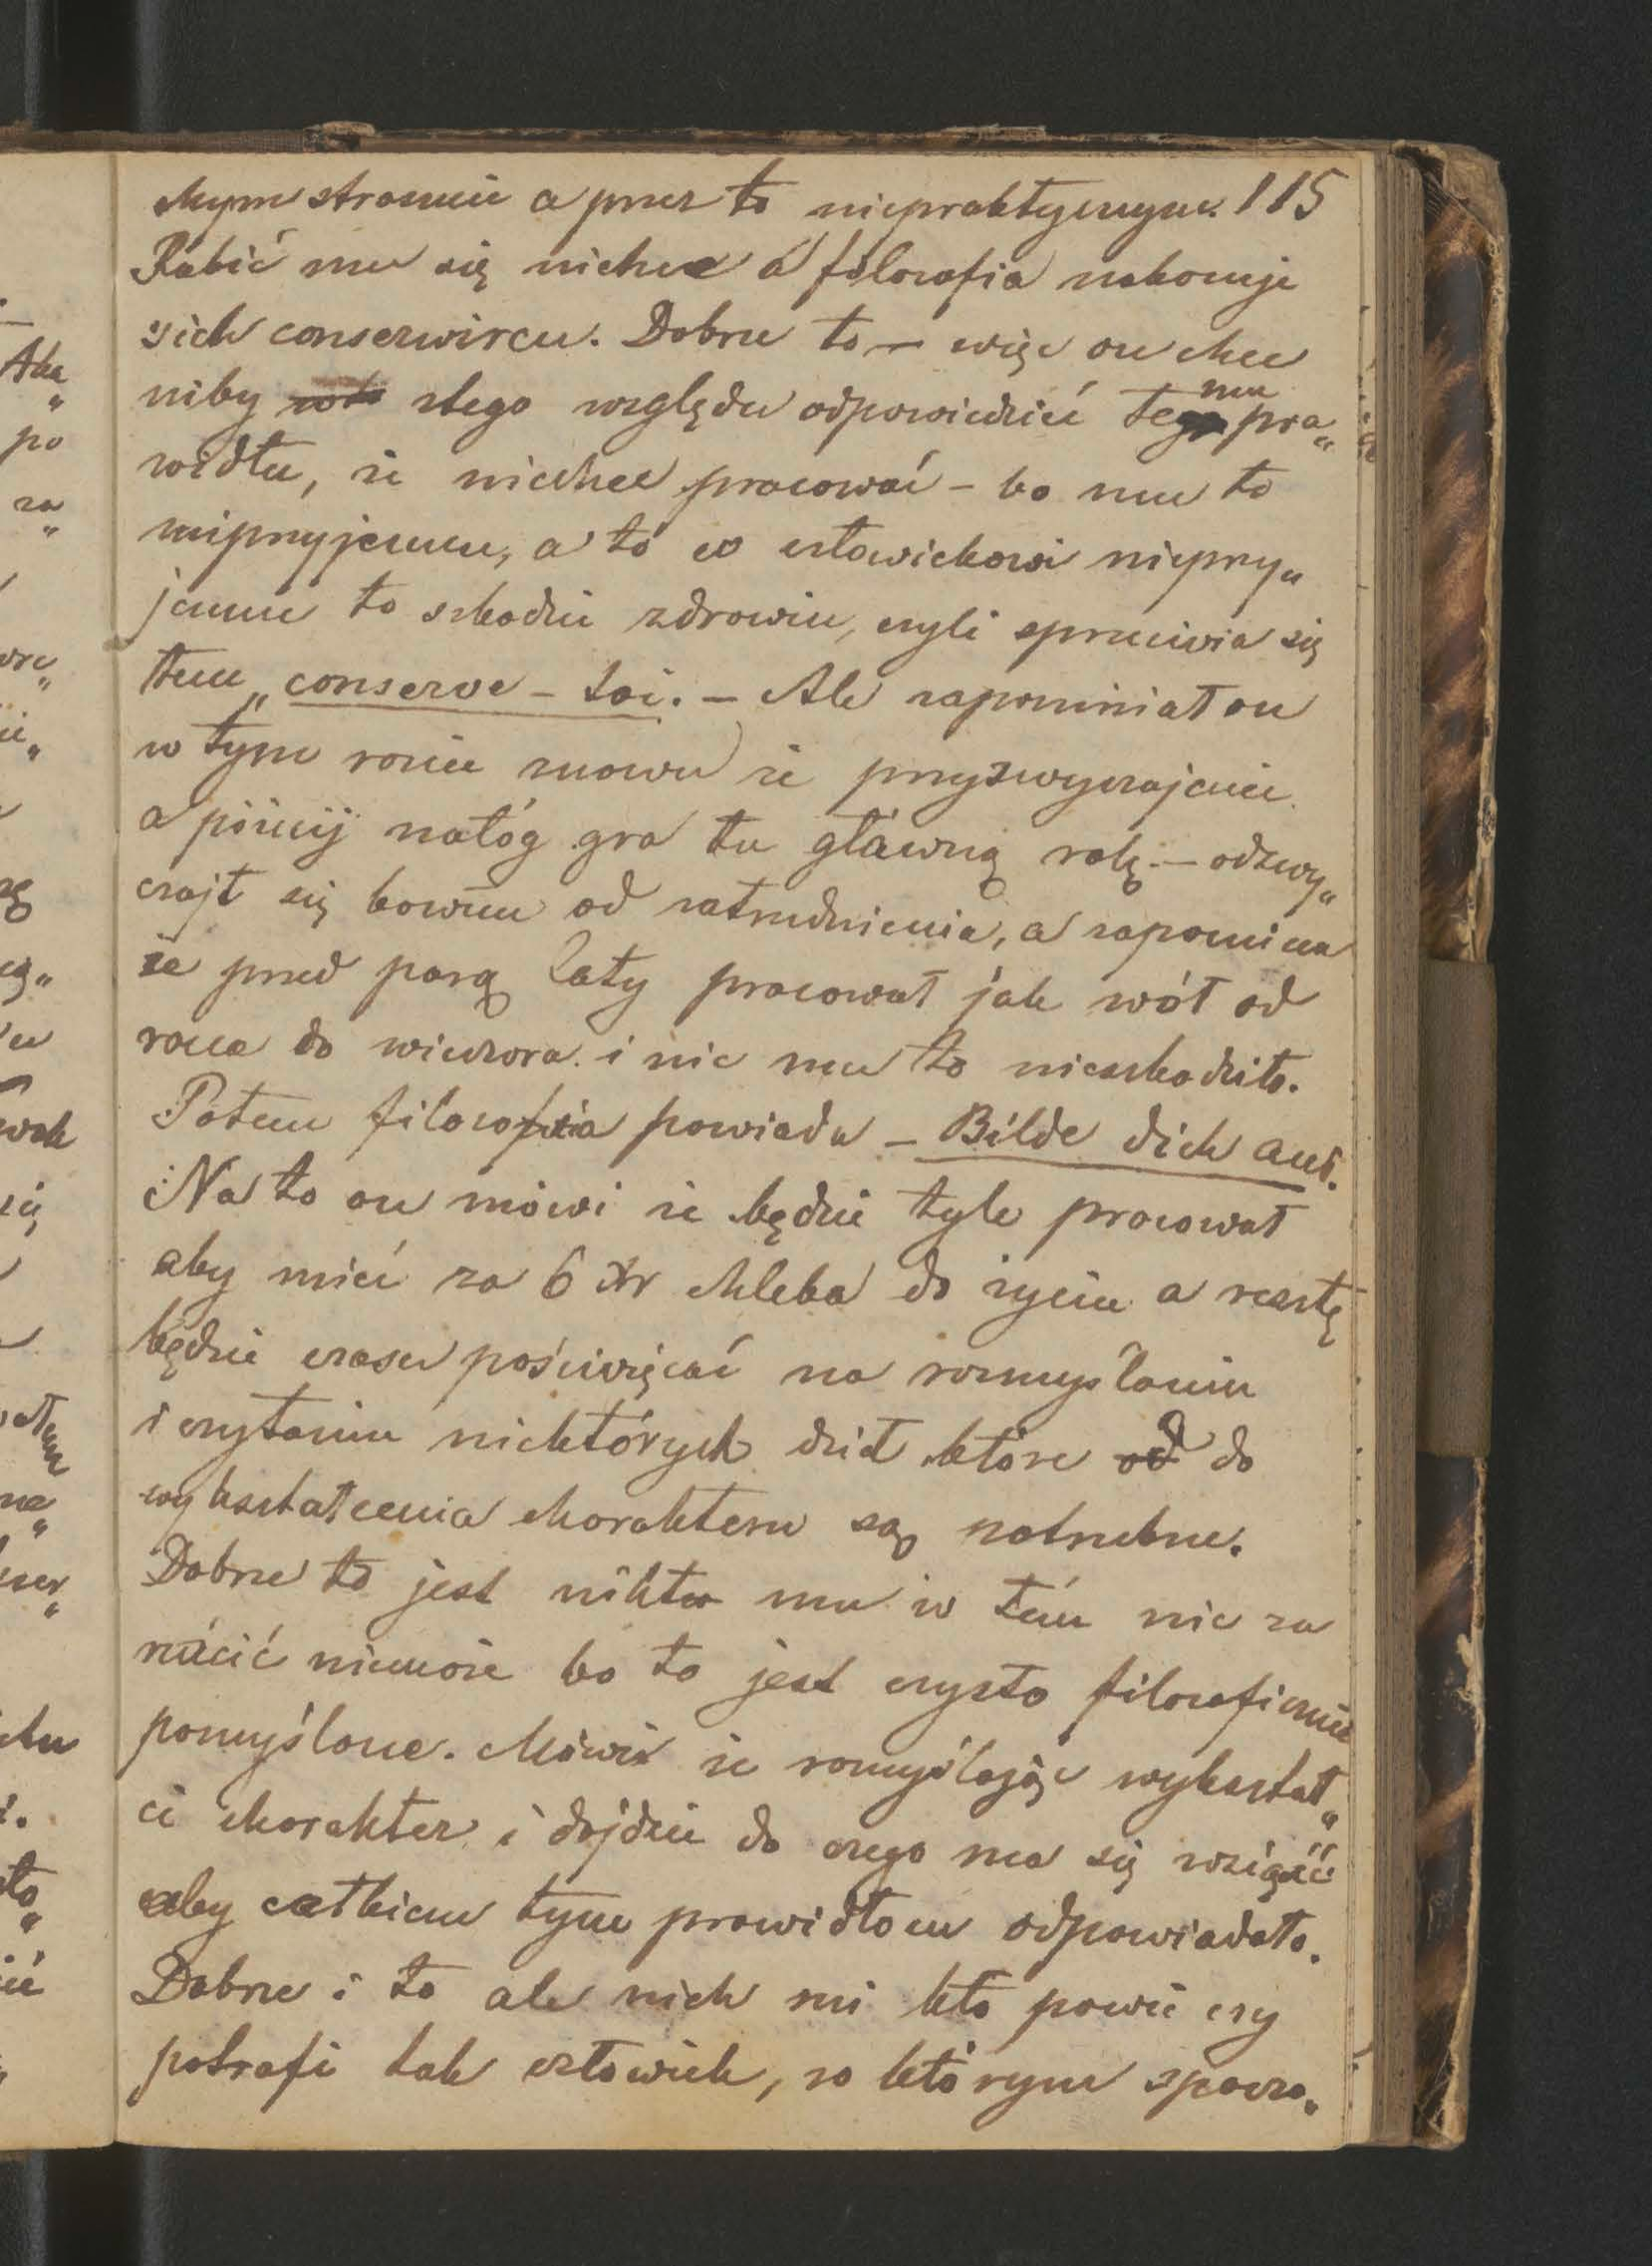 chym stronnie a przez to niepraktycznym. 115
Robić mu się niechce a filozofia nakazuje
sich conserwiren. Dobrze to — więc on chce
niby ztego względu odpowiedzieć temu pra„
widłu, że niechce pracować – bo mu to
nieprzyjemne, a to co człowiekowi nieprzy„
jemne to szkodzi zdrowiu, czyli sprzeciwia się
temu „conserve – toi. – Ale zapominiał on
w tym razie znowu że przyzwyczajenie
a później nałóg gra tu główną rolę. – odzwy„
czajł się bowiem od zatrudnienia, a zapomina
że przed parą laty pracował jak wół od
rana do wieczora i nic mu to nieszkodziło.
Potem filozofia powiada – Bilde dich aus.
Na to on mówi że będzie tyle pracował
aby mieć za 6 Xr chleba do życia a resztę
będzie czasu poświęcać na rozmyślaniu
i czytaniu niektórych dzieł które od do
wykształcenia charakteru są potrzebne.
Dobrze to jest nikt mu w tém nic za
rzucić niemoże bo to jest czysto filozoficznie
pomyślone. Mówi że rozmyślając wykształ„
ci charakter i dojdzie do czego ma się wziąść
aby całkiem tym prawidłom odpowiadało.
Dobrze i to ale niech mi kto powie czy
potrafi tak człowiek, za którym spocza„